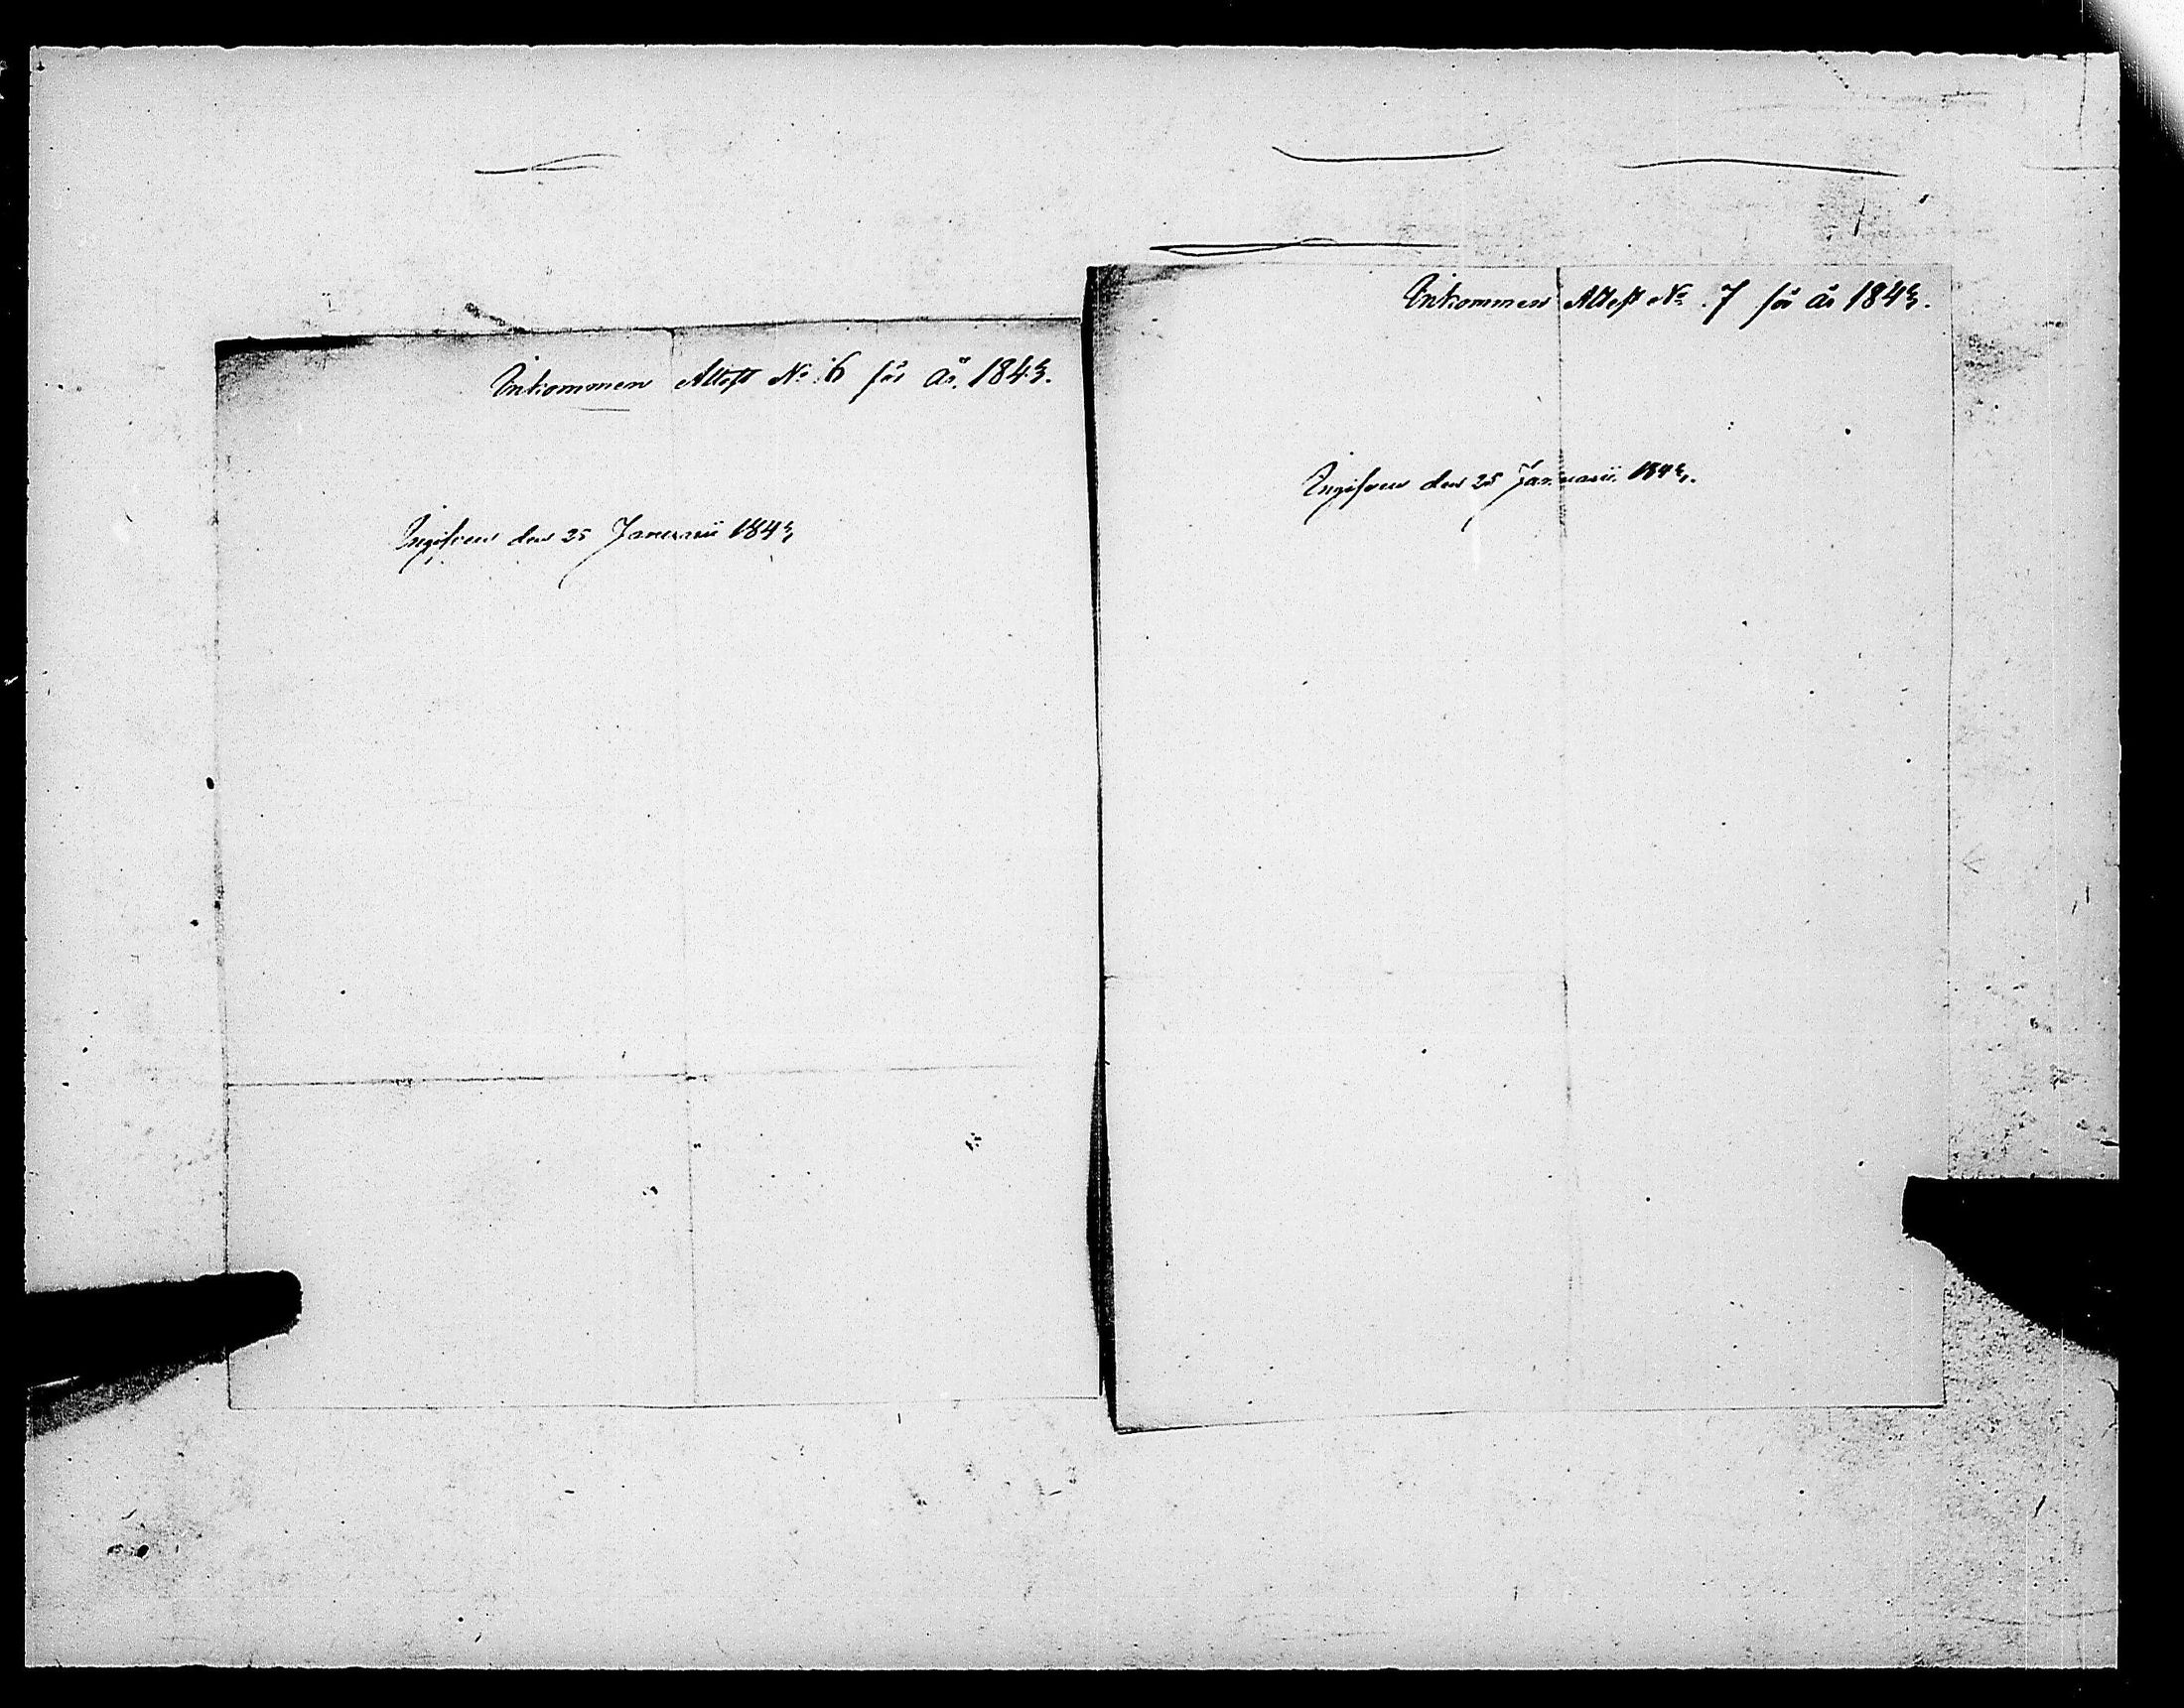 Inkommen Attest No 6 för år 1843.
Ingifven den 25 Januarii 1843
Inkommen Attest No 7 för år 1843.
Ingifven den 25 Januarii 1843.